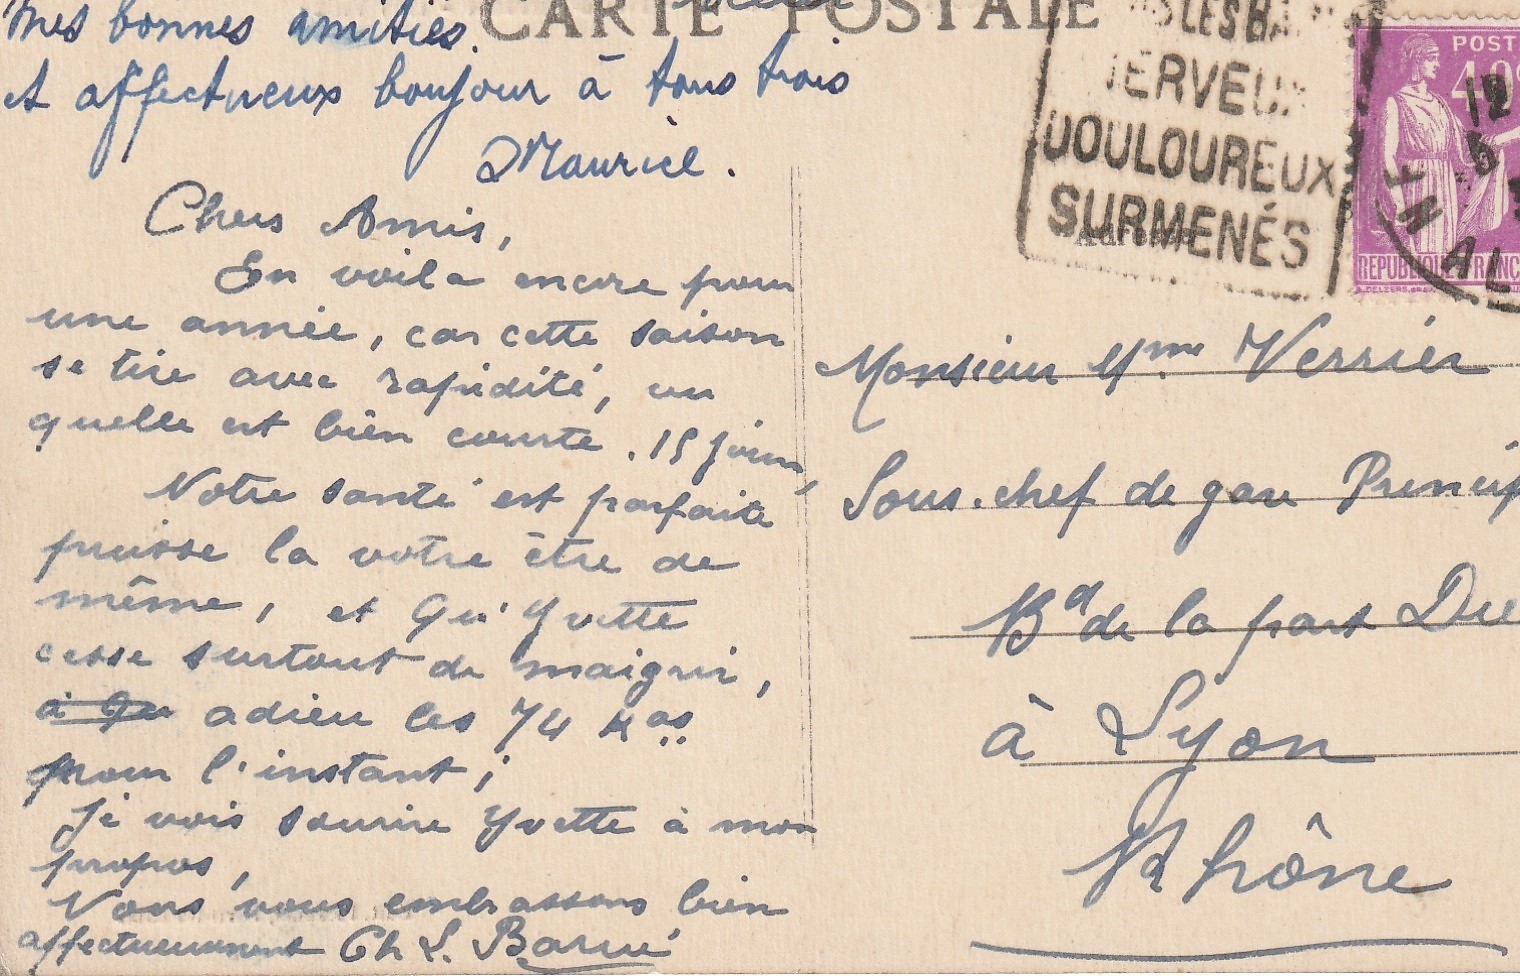 Mes bonnes amitiés.
et affectueux bonjour à tous trois
Maurice.
CARTE POSTALE
NERVEUX
DOULOUREUX
SURMENÉS
POST
40c
12
REPUBLIQUE FRANÇ
Chers Amis,
En voila encore pour
une année, car cette saison
se tire avec rapidité, vu
quelle est bien courte. 15 jours,
Notre santé est parfaite
puisse la votre être de
même, et Qu'Yvette
cesse surtout de maigrir,
adieu les 74 Kgs
pour l'instant;
Je vois sourire Yvette à mon
propos,
Nous vous embrassons bien
affectueusement Ch L. Barrué
Monsieur Mme Verrier
Sous-chef de gare Princip
Bd de la part Die
à Lyon
Rhône